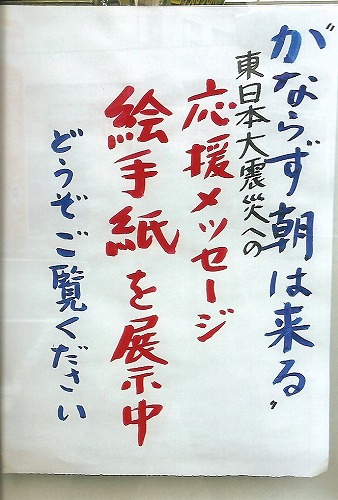 〝かならず朝は来る〟
東日本大震災への
応援メッセージ
絵手紙を展示中
どうぞご覧ください